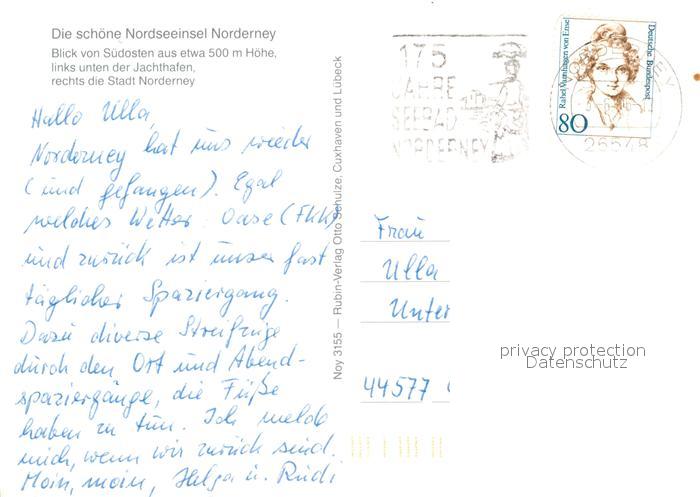 Die schöne Nordseeinsel Norderney
Blick von Südosten aus etwa 500 m Höhe,
links unten der Jachthafen,
rechts die Stadt Norderney
Hallo Ulla,
Norderney hat uns wieder
(und gefangen). Egal
welches Wetter: Oase (FKK)
und zurück ist unser fast
täglicher Spaziergang.
Dazu diverse Streifzüge
durch den Ort und Abend-
spaziergänge, die Füße
haben zu tun. Ich melde
mich, wenn wir zurück sind.
Moin, moin, Helga u. Rudi
Noy 3155 — Rubin-Verlag Otto Schulze, Cuxhaven und Lübeck
175
JAHRE
SEEBAD
NORDERNEY
Rahel Varnhagen von Ense
Deutsche Bundespost
80
26548
Frau
Ulla
Unter
44577
privacy protection
Datenschutz